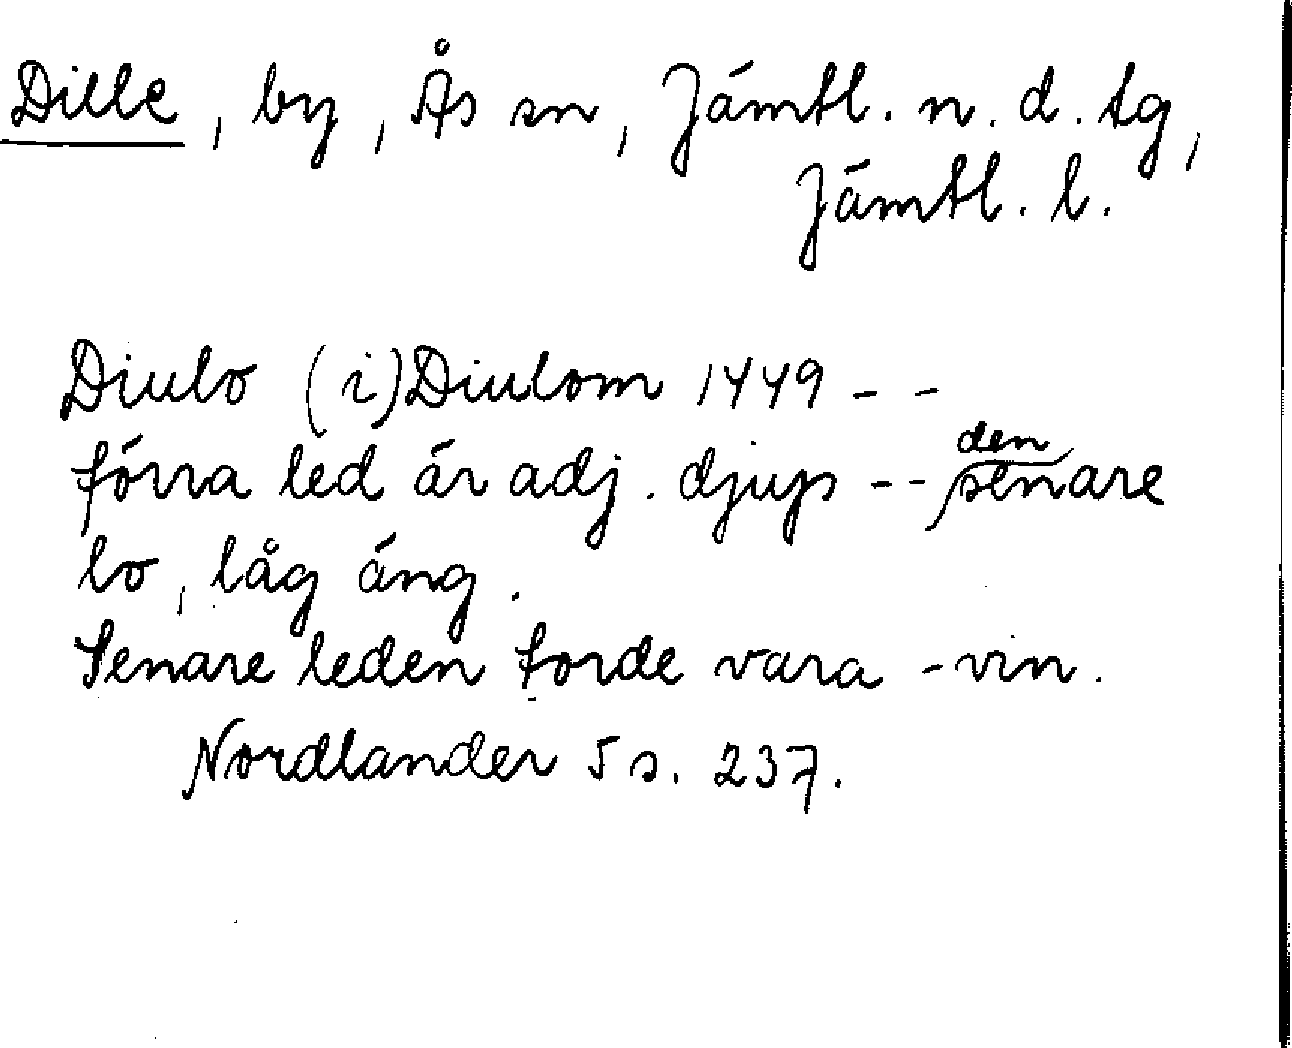 Dille, by, Ås sn, Jämtl. n. d. tg,
Jämtl. l.
Diulo (i) Diulom 1449 - -
förra led är adj. djups - - den senare
lo, låg äng.
Senare leden torde vara -vin.
Nordlander 5 s. 237.